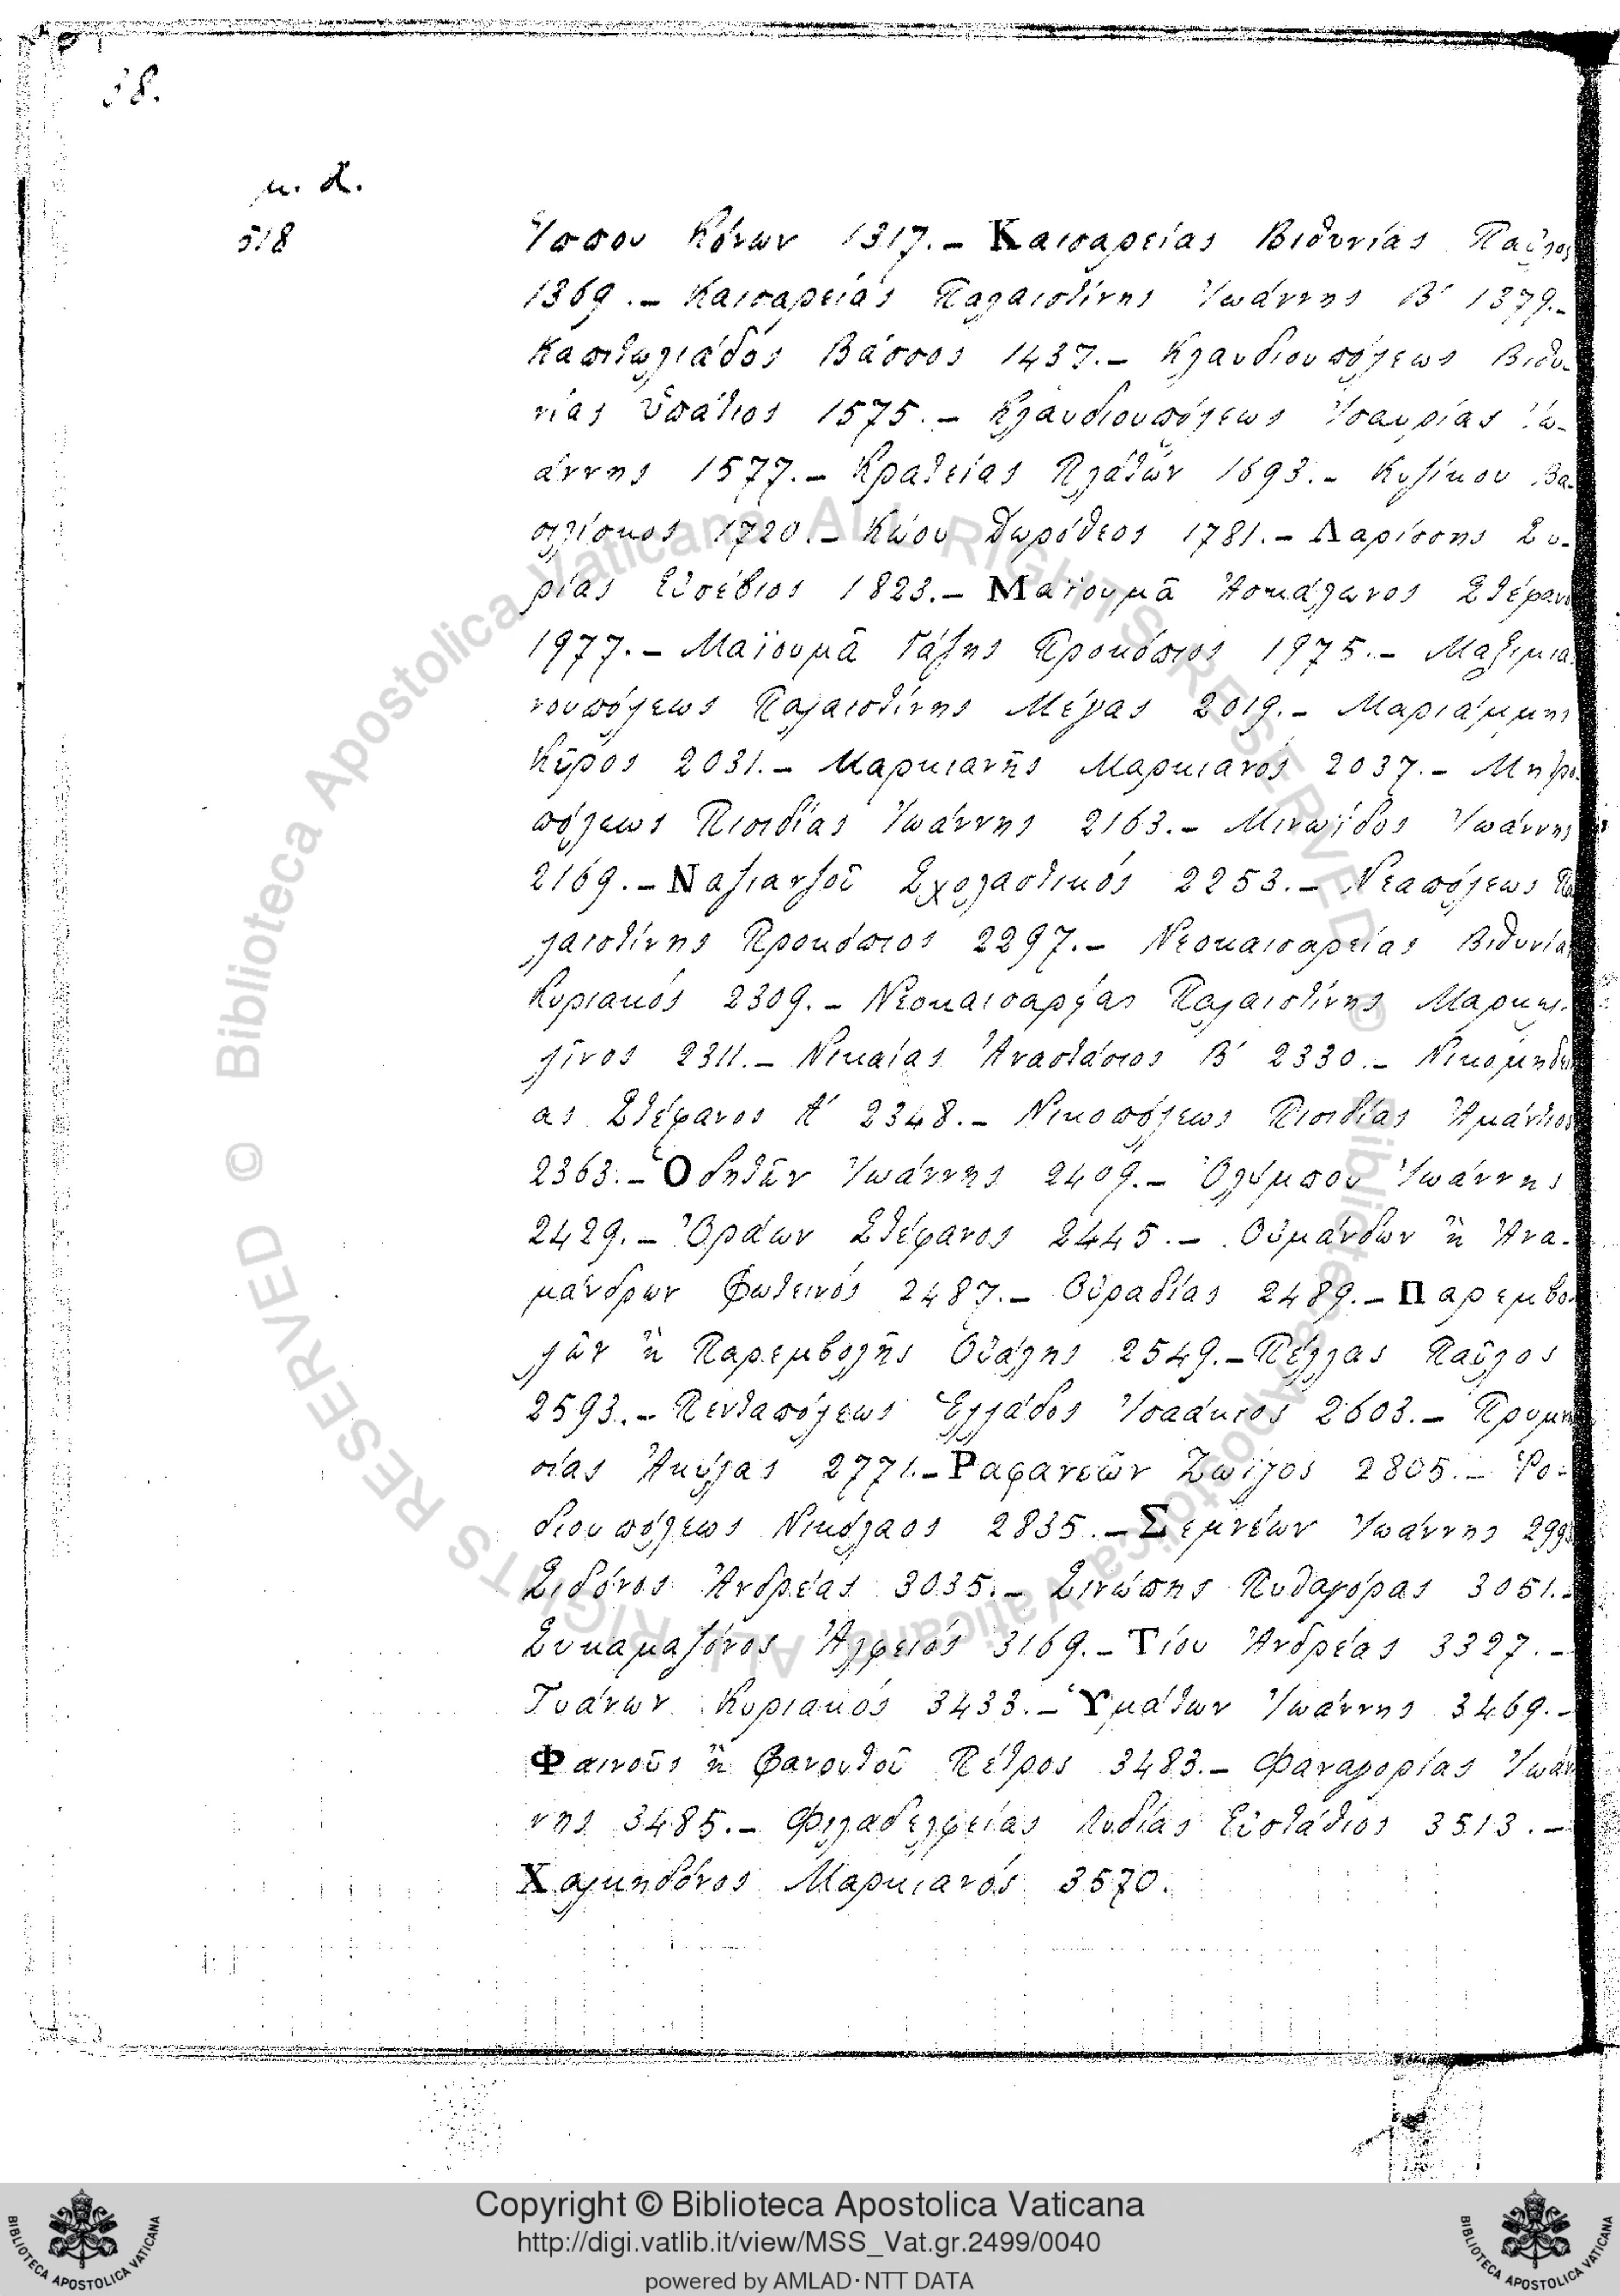 38.
μ. Χ.
518
Ἵππου Κόνων 1317.- Καισαρείας Βιθυνίας Παῦλος
1369.- Καισαρείας Παλαιστίνης Ἰωάννης Β΄ 1379.-
Καπιτωλιάδος Βάσσος 1437.- Κλαυδιουπόλεως Βιθυ-
νίας Ὑπάτιος 1575.- Κλαυδιουπόλεως Ἰσαυρίας Ἰω-
άννης 1577.- Κρατείας Πλάτων 1693.- Κυζίκου Βα-
σιλίσκος 1720.- Κώου Δωρόθεος 1781.- Λαρίσσης Συ-
ρίας Εὐσέβιος 1823.- Μαϊουμᾶ Ἀσκάλωνος Στέφανο
1977.- Μαϊουμᾶ Γάζης Προκόπιος 1975.- Μαξιμια-
νουπόλεως Παλαιστίνης Μέγας 2019.- Μαριάμμης
Κῦρος 2031.- Μαρκιανῆς Μαρκιανός 2037.- Μητρο
πόλεως Πισιδίας Ἰωάννης 2163.- Μινωΐδος Ἰωάννης
2169.- Ναζιανζοῦ Σχολαστικός 2253.- Νεαπόλεως Πα
λαιστίνης Προκόπιος 2297.- Νεοκαισαρείας Βιθυνίας
Κυριακός 2309.- Νεοκαισαρείας Παλαιστίνης Μαρκελ-
λῖνος 2311.- Νικαίας Ἀναστάσιος Β΄ 2330.- Νικομηδεί
ας Στέφανος Α΄ 2348.- Νικοπόλεως Πισιδίας Ἀμάντιος
2363.- Ὁδητῶν Ἰωάννης 2409.- Ὀλύμπου Ἰωάννης
2429.- Ὀρδων Στέφανος 2445.- Οὐμάνδων ἢ Ἀνα-
μάνδρων Φωτεινός 2487.- Οὐραδίας 2489.- Παρεμβο
λῶν ἢ Παρεμβολῆς Οὐάλης 2549.- Πέλλας Παῦλος
2593.- Πενταπόλεως Ἑλλάδος Ἰσαάκιος 2603.- Πρυμνη
σίας Ἀκύλας 2771.- Ραφανεῶν Ζωΐλος 2805.- Ῥο-
διουπόλεως Νικόλαος 2835.- Σεμνέων Ἰωάννης 299
Σιδόνος Ἀνδρέας 3035.- Σινώπης Πυθαγόρας 3051.-
Συκαμαζόνος Ἀλφειός 3169.- Τίου Ἀνδρέας 3327.-
Τυάνων Κυριακός 3433.- Ὑμάτων Ἰωάννης 3469.-
Φαινοῦς ἢ Φανουτοῦ Πέτρος 3483.- Φαναγορίας Ἰωάν
νης 3485.- Φιλαδελφείας Λυδίας Εὐστάθιος 3513.-
Χαλκηδόνος Μαρκιανός 3570.
© Biblioteca Apostolica Vaticana ALL RIGHTS RESERVED
© Biblioteca Apostolica Vaticana ALL RIGHTS RESERVED
Copyright © Biblioteca Apostolica Vaticana
http://digi.vatlib.it/view/MSS_Vat.gr.2499/0040
powered by AMLAD·NTT DATA
BIBLIOTECA APOSTOLICA VATICANA
BIBLIOTECA APOSTOLICA VATICANA